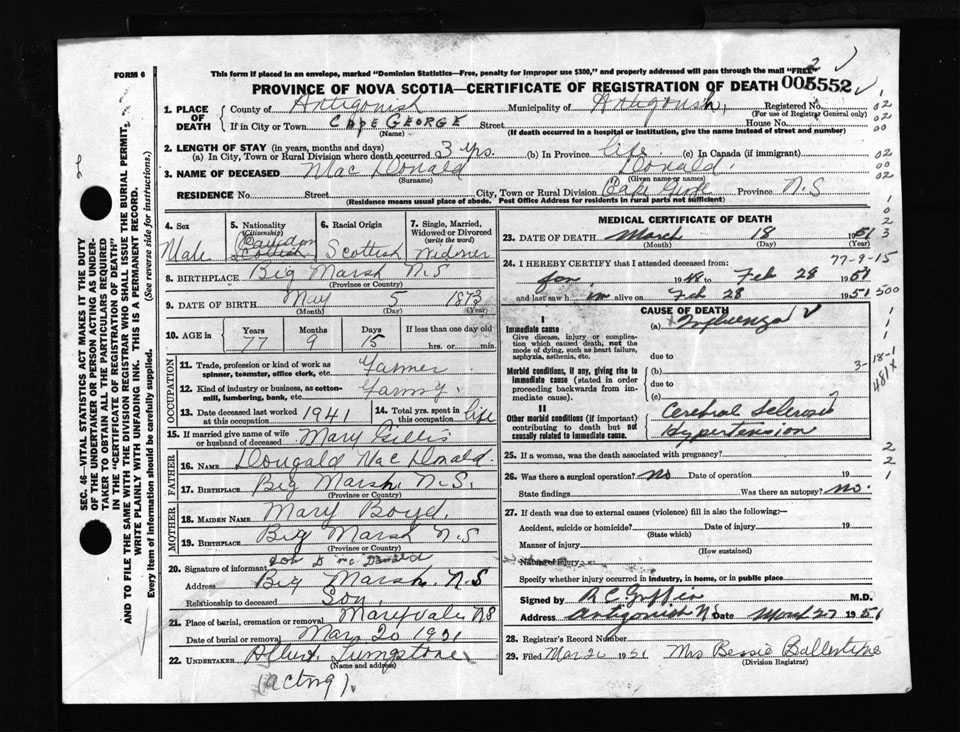 FORM 6
This form if placed in an envelope, marked "Dominion Statistics—Free, penalty for improper use $300," and properly addressed will pass through the mail "FREE" 2
PROVINCE OF NOVA SCOTIA—CERTIFICATE OF REGISTRATION OF DEATH 005552
1. PLACE OF DEATH County of Antigonish Municipality of Antigonish, Registered No.
(For use of Registrar General only)
If in City or Town CAPE GEORGE Street House No.
(Name) (If death occurred in a hospital or institution, give the name instead of street and number)
2. LENGTH OF STAY (in years, months and days)
(a) In City, Town or Rural Division where death occurred 3 yrs. (b) In Province life. (c) In Canada (if immigrant)
3. NAME OF DECEASED Mac Donald Donald.
(Surname) (Given name or names)
RESIDENCE No. Street City, Town or Rural Division Cape George Province N.S
(Residence means usual place of abode. Post Office Address for residents in rural parts not sufficient)
4. Sex Male
5. Nationality (Citizenship) Canadian Scottish
6. Racial Origin Scottish
7. Single, Married, Widowed or Divorced (write the word) Widower
8. BIRTHPLACE Big Marsh N S
(Province or Country)
9. DATE OF BIRTH May 5 1873
(Month) (Day) (Year)
10. AGE in Years Months Days If less than one day old
77 9 15 hrs. or min.
OCCUPATION
11. Trade, profession or kind of work as spinner, teamster, office clerk, etc. Farmer
12. Kind of industry or business, as cotton-mill, lumbering, bank, etc. Farmg.
13. Date deceased last worked at this occupation 1941 14. Total yrs. spent in this occupation life
15. If married give name of wife or husband of deceased Mary Gillis
FATHER
16. NAME Dougald Mac Donald.
17. BIRTHPLACE Big Marsh. N.S.
(Province or Country)
MOTHER
18. MAIDEN NAME Mary Boyd.
19. BIRTHPLACE Big Marsh N S
(Province or Country)
20. Signature of informant John D Mc Donald
Address Big Marsh. N.S
Relationship to deceased Son.
21. Place of burial, cremation or removal Maryvale NS
Date of burial or removal Mar 20 1951
22. UNDERTAKER Albert
(Name and address)
(acting).
MEDICAL CERTIFICATE OF DEATH
23. DATE OF DEATH March 18 1951
(Month) (Day) (Year)
77-9-15
24. I HEREBY CERTIFY that I attended deceased from:
Jan 1948 to Feb 28 1951
and last saw him alive on Feb 28 1951 500
CAUSE OF DEATH
I
Immediate cause
Give disease, injury or complication which caused death, not the mode of dying, such as heart failure, asphyxia, asthenia, etc.
(a) Influenza
due to
Morbid conditions, if any, giving rise to immediate cause (stated in order proceeding backwards from immediate cause).
(b)
due to
(c)
3-18-1
481x
II
Other morbid conditions (if important) contributing to death but not causally related to immediate cause.
Cerebral Sclerosis
Hypertension
25. If a woman, was the death associated with pregnancy?
26. Was there a surgical operation? No Date of operation 19
State findings Was there an autopsy? no.
27. If death was due to external causes (violence) fill in also the following:—
Accident, suicide or homicide? Date of injury 19
(State which)
Manner of injury
(How sustained)
Nature of injury
Specify whether injury occurred in industry, in home, or in public place
Signed by R C Griffin M.D.
Address Antigonish NS Date March 27 1951
28. Registrar's Record Number
29. Filed Mar 26 1951 Mrs Bessie Ballentine
(Division Registrar)
SEC. 46—VITAL STATISTICS ACT MAKES IT THE DUTY
OF THE UNDERTAKER OR PERSON ACTING AS UNDER-
TAKER TO OBTAIN ALL THE PARTICULARS REQUIRED
IN THE "CERTIFICATE OF REGISTRATION OF DEATH"
AND TO FILE THE SAME WITH THE DIVISION REGISTRAR WHO SHALL ISSUE THE BURIAL PERMIT.
WRITE PLAINLY WITH UNFADING INK. THIS IS A PERMANENT RECORD.
Every item of information should be carefully supplied. (See reverse side for instructions.)